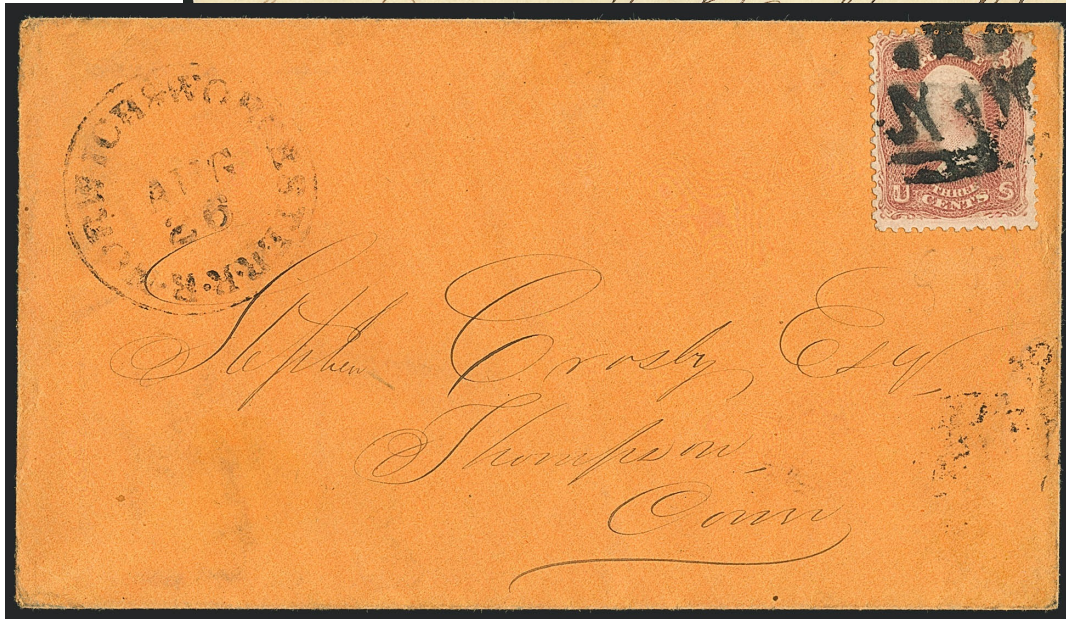 NORWICH & WORCESTER. R. R.
AUG
26
U THREE S
CENTS
Stephen Crosby, Esq
Thompson,
Conn